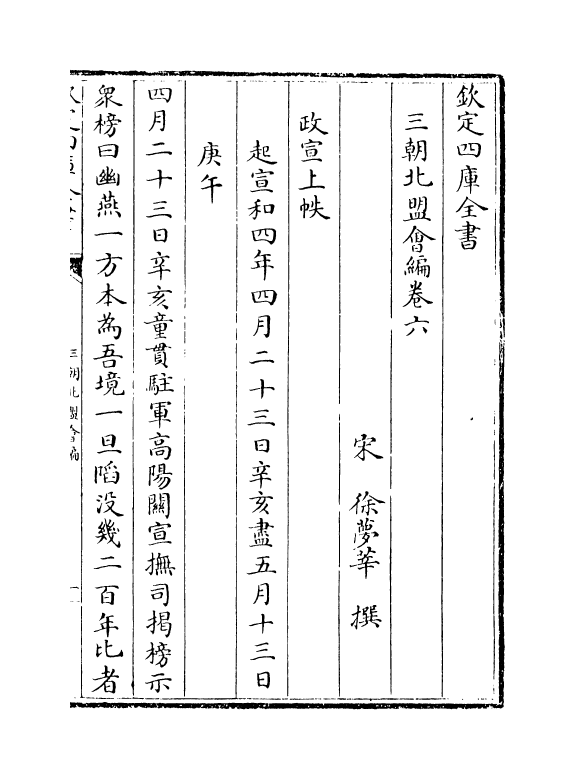 欽定四庫全書
三朝北盟會編卷六
宋 徐夢莘 撰
政宣上帙
起宣和四年四月二十三日辛亥盡五月十三日
庚午
四月二十三日辛亥童貫駐軍高陽關宣撫司揭榜示
衆榜曰幽燕一方本為吾境一旦陷没幾二百年比者
三朝北盟會編